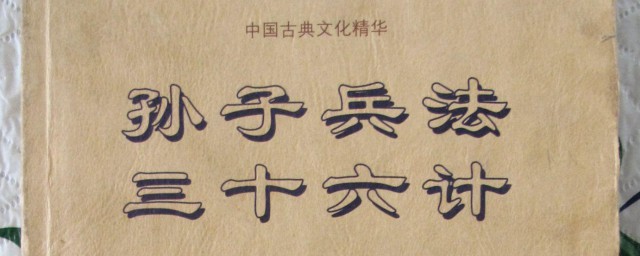 中国古典文化精华
孙子兵法
三十六计